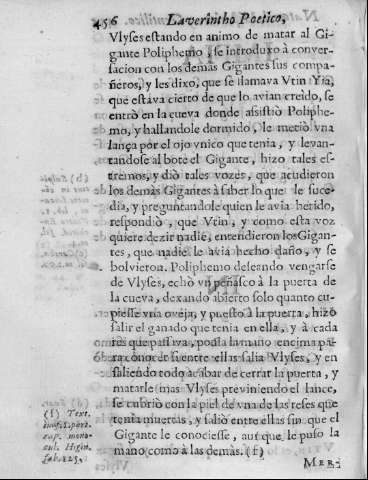 456 Laverintho Poetico,
Vlyses estando en animo de matar al Gi-
gante Poliphemo, se introduxo à conver-
sacion con los demàs Gigantes sus compa-
ñeros, y les dixo, que se llamava Vtin Yia,
que estava cierto de que lo avian creido, se
entrò en la cueva donde assistiò Poliphe-
mo, y hallandole dormido, le metiò vna
lança por el ojo vnico que tenia, y levan-
tandose al bote el Gigante, hizo tales es-
tremos, y diò tales vozes, que acudieron
los demàs Gigantes à saber lo que le suce-
dia, y preguntandole quien le avia herido,
respondiò, que Vtin, y como esta voz
quiere dezir nadie, entendieron los Gigan-
tes, que nadie le avia hecho daño, y se
bolvieron. Poliphemo deseando vengarse
de Vlyses, echò vn peñasco à la puerta de
la cueva, dexando abierto solo quanto cu-
piesse vna oveja, y puesto à la puerta, hizo
salir el ganado que tenia en ella, y à cada
res que passava, ponia la mano encima pa-
ra conocer si entre ellas salia Vlyses, y en
saliendo todo acabar de cerrar la puerta, y
matarle; mas Vlyses previniendo el lance,
se cubriò con la piel de vna de las reses que
tenia muertas, y saliò entre ellas sin que el
Gigante le conociesse, aunque le puso la
mano como à las demàs. (f)
(f) Text.
sup. mona-
cul. Higin.
fab. 125.
Mer-